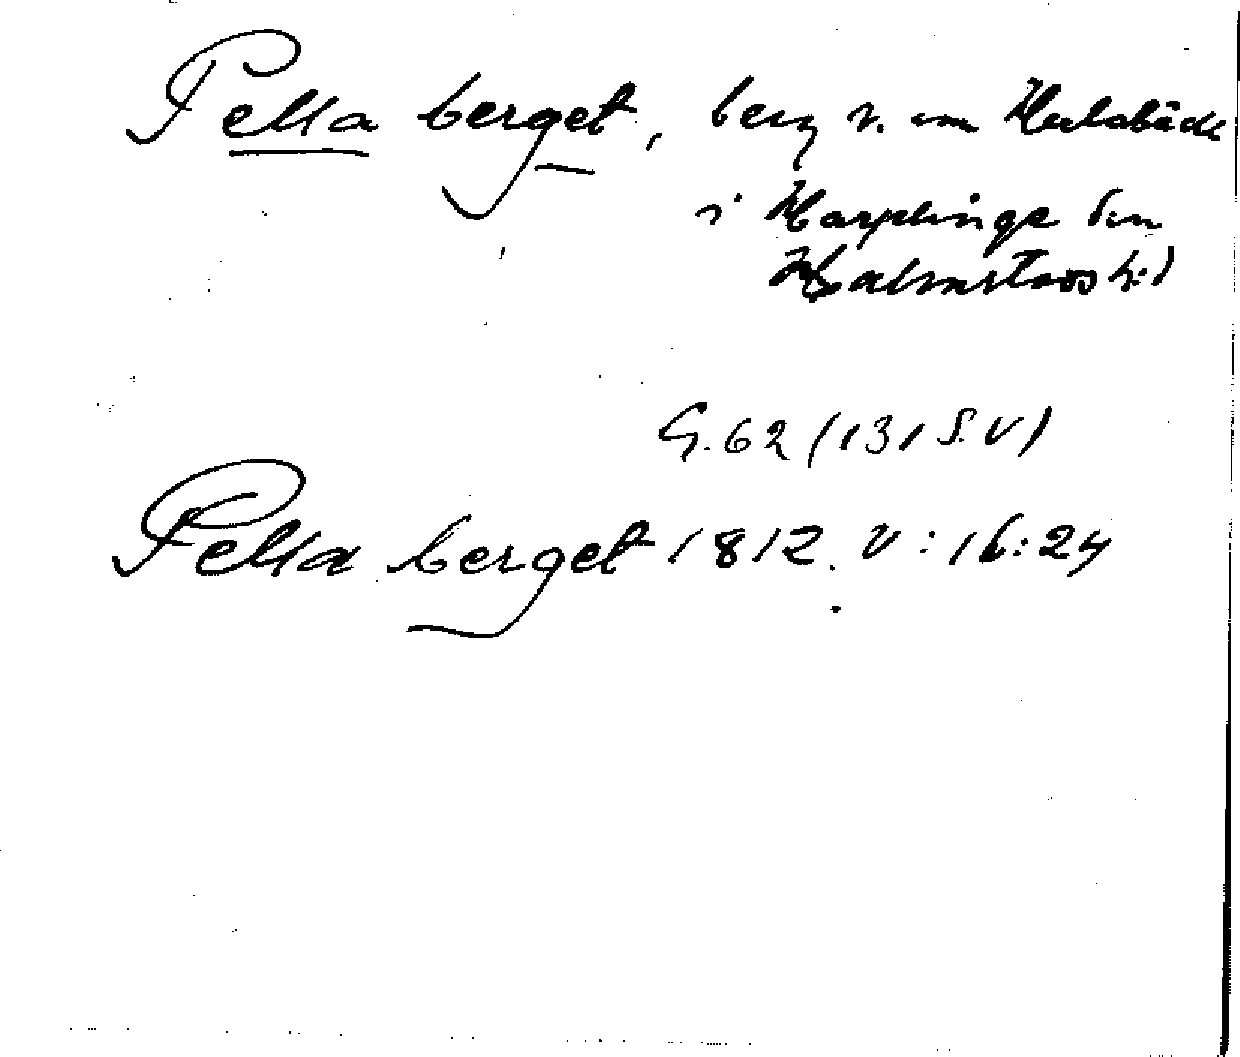 Pella berget, berg v. om Hulabäck
i Harplinge sn
Halmstads h:d
G.62 (131 S.V)
Pella berget 1812. V:16:24